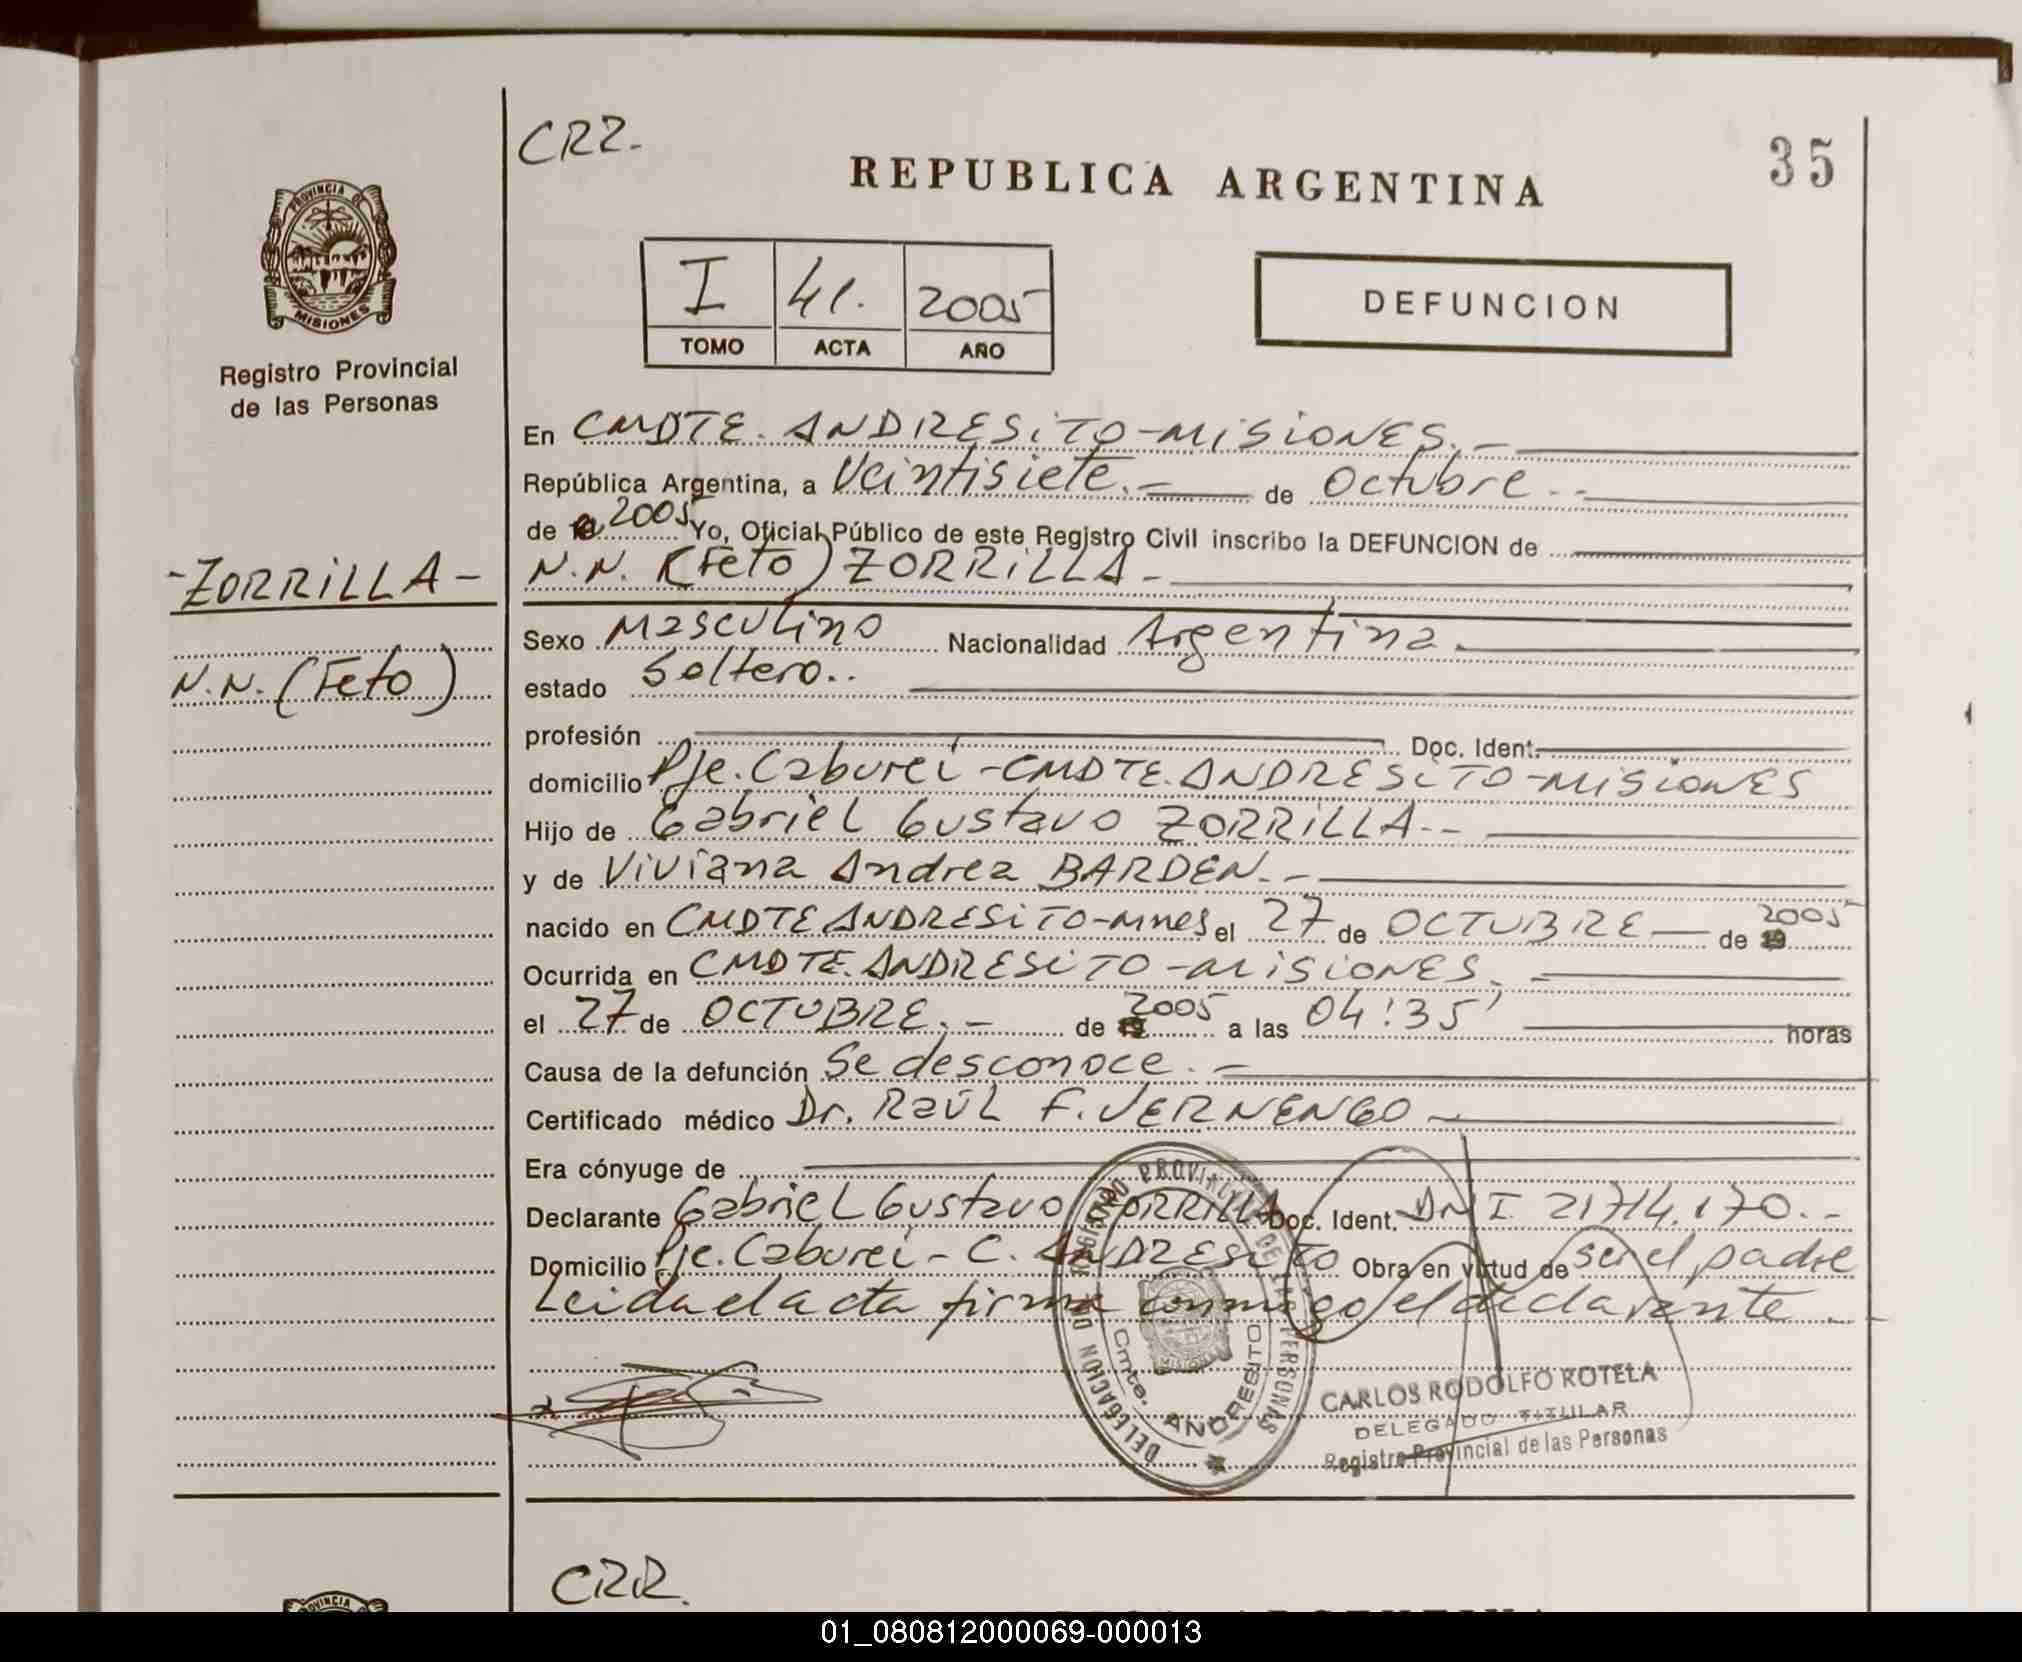 CRR.
REPUBLICA ARGENTINA
35
PROVINCIA DE
MISIONES
Registro Provincial
de las Personas
I 41. 2005
TOMO ACTA AÑO
DEFUNCION
En CMDTE. ANDRESITO-MISIONES.-
República Argentina, a Veintisiete.- de Octubre.-
de 2005 Yo, Oficial Público de este Registro Civil inscribo la DEFUNCION de
N.N. (Feto) ZORRILLA-
-ZORRILLA-
N.N. (Feto)
Sexo Masculino Nacionalidad Argentina.
estado Soltero..
profesión Doc. Ident.
domicilio Pje. Caburei-CMDTE.ANDRESITO-MISIONES
Hijo de Gabriel Gustavo ZORRILLA.--
y de Viviana Andrea BARDEN.-
nacido en CMDTE ANDRESITO-Mnes el 27 de OCTUBRE- de 19 2005
Ocurrida en CMDTE.ANDRESITO-MISIONES.-
el 27 de OCTUBRE.- de 19 2005 a las 04:35' horas
Causa de la defunción Se desconoce.-
Certificado médico Dr. Raúl F. VERNENGO-
Era cónyuge de
Declarante Gabriel Gustavo ZORRILLA Doc. Ident. DNI 21714.170.-
Domicilio Pje. Caburei-C. ANDRESITO Obra en virtud de ser el padre
Leida el acta firma conmigo el declarante.-
DELEGACION DEL REGISTRO PROVINCIAL DE LAS PERSONAS
Cmte. ANDRESITO
MISIONES
CARLOS RODOLFO ROTELA
DELEGADO TITULAR
Registro Provincial de las Personas
CRR.
PROVINCIA
01_080812000069-000013